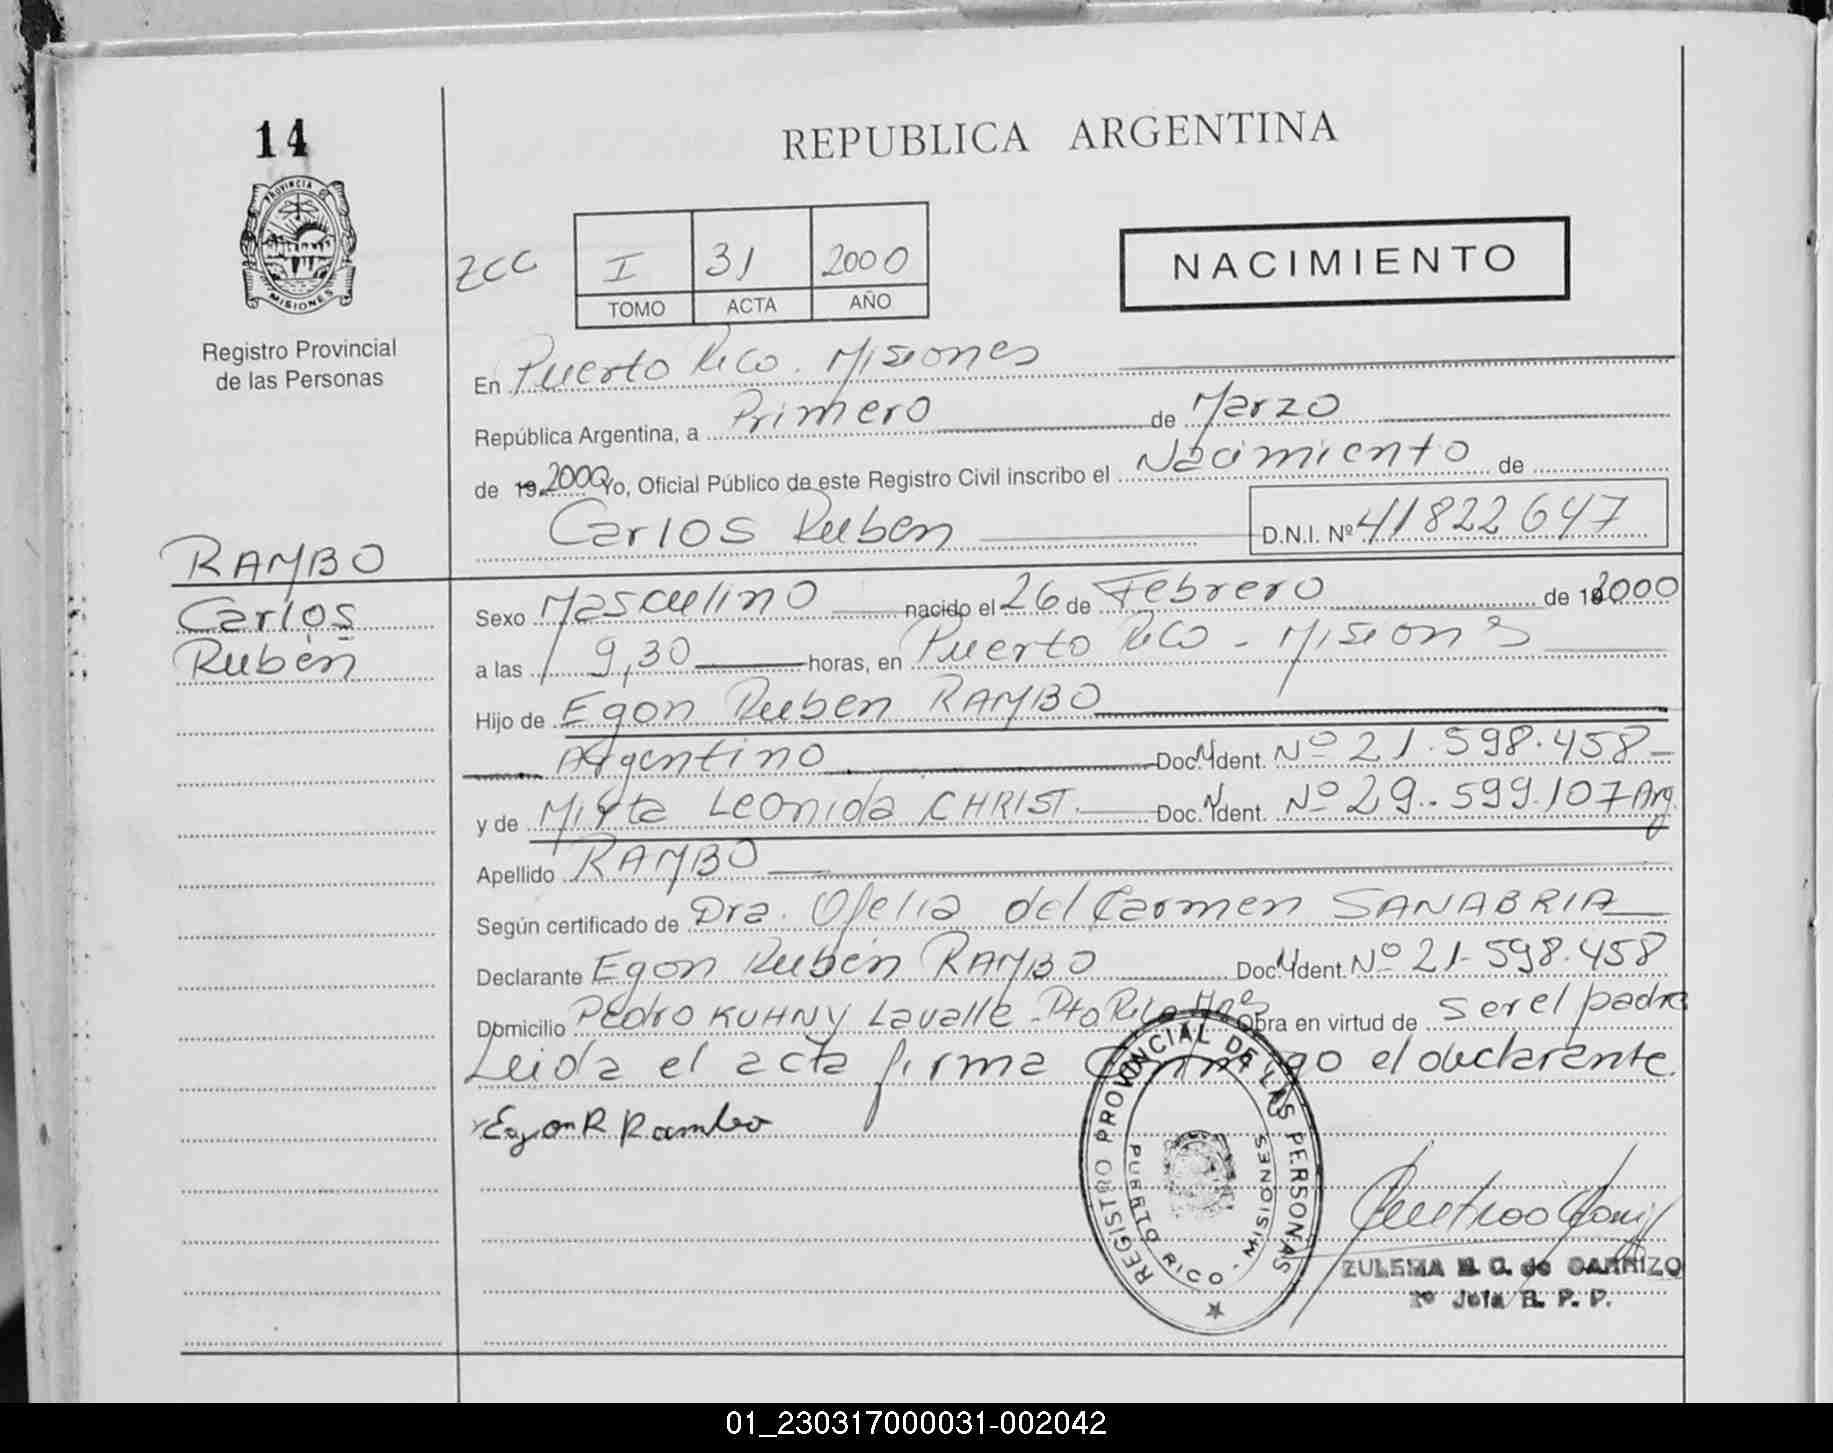 14
PROVINCIA DE
MISIONES
Registro Provincial
de las Personas
REPUBLICA ARGENTINA
zcc
I 31 2000
TOMO ACTA AÑO
NACIMIENTO
En Puerto Rico. Misiones
República Argentina, a Primero de Marzo
de 19 2000 Yo, Oficial Público de este Registro Civil inscribo el Nacimiento de
Carlos Ruben D.N.I. Nº 41822647
RAMBO
Carlos
Rubén
Sexo Masculino nacido el 26 de Febrero de 2000
a las 9,30 horas, en Puerto Rico - Misiones
Hijo de Egon Ruben RAMBO
Argentino Doc. N Ident. Nº 21.598.458
y de Mirta Leonida CHRIST. Doc. N Ident. Nº 29.599.107 Arg.
Apellido RAMBO
Según certificado de Dra. Ofelia del Carmen SANABRIA
Declarante Egon Rubén RAMBO Doc. N Ident. Nº 21.598.458
Domicilio Pedro KUHNY Lavalle - Pto Rico Mnes Obra en virtud de ser el padre
Leida el acta firma conmigo el declarante.
Egon R Rambo
REGISTRO PROVINCIAL DE LAS PERSONAS
PUERTO RICO - MISIONES
ZULEMA de CARRIZO
Jefa R. P. P.
01_230317000031-002042